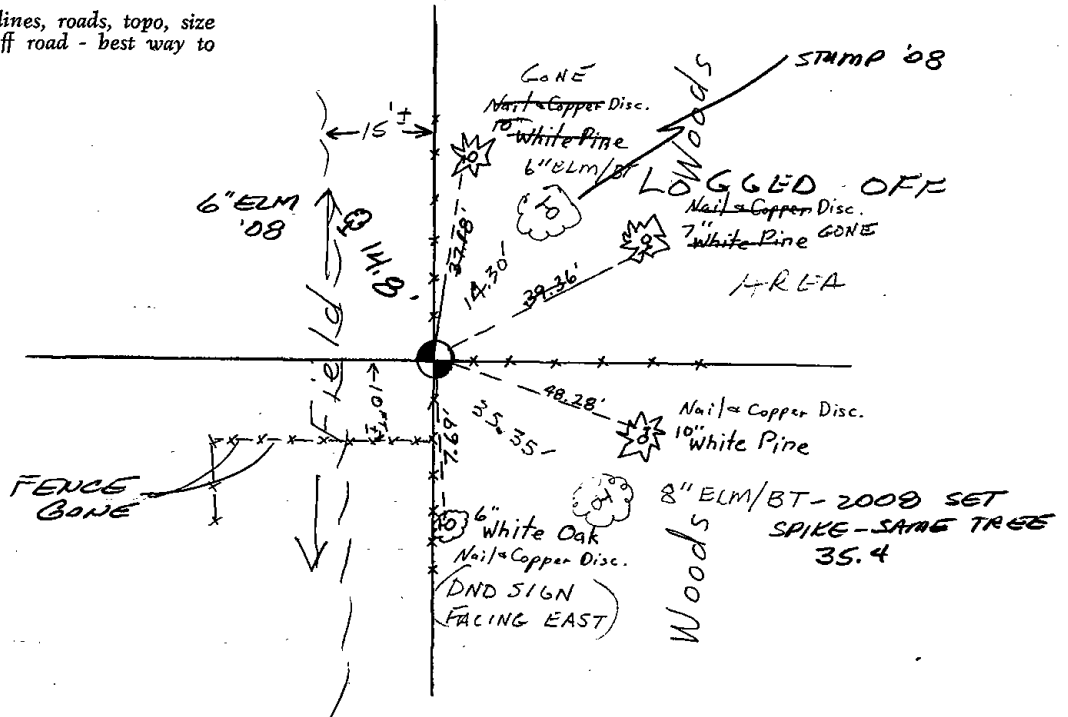 lines, roads, topo, size
ff road - best way to
GONE
Nail & Copper Disc.
10" White Pine
6" ELM/BT
STUMP '08
Woods
LOGGED OFF
Nail & Copper Disc.
7" White Pine GONE
AREA
15'±
6" ELM
'08
@ 14.8'
37.18'
14.30'
39.36'
Field
10'±
48.28'
Nail & Copper Disc.
10" White Pine
35.35'
7.69'
FENCE
GONE
6"
White Oak
Nail & Copper Disc.
(DND SIGN
FACING EAST)
8" ELM/BT - 2008 SET
SPIKE - SAME TREE
35.4
Woods